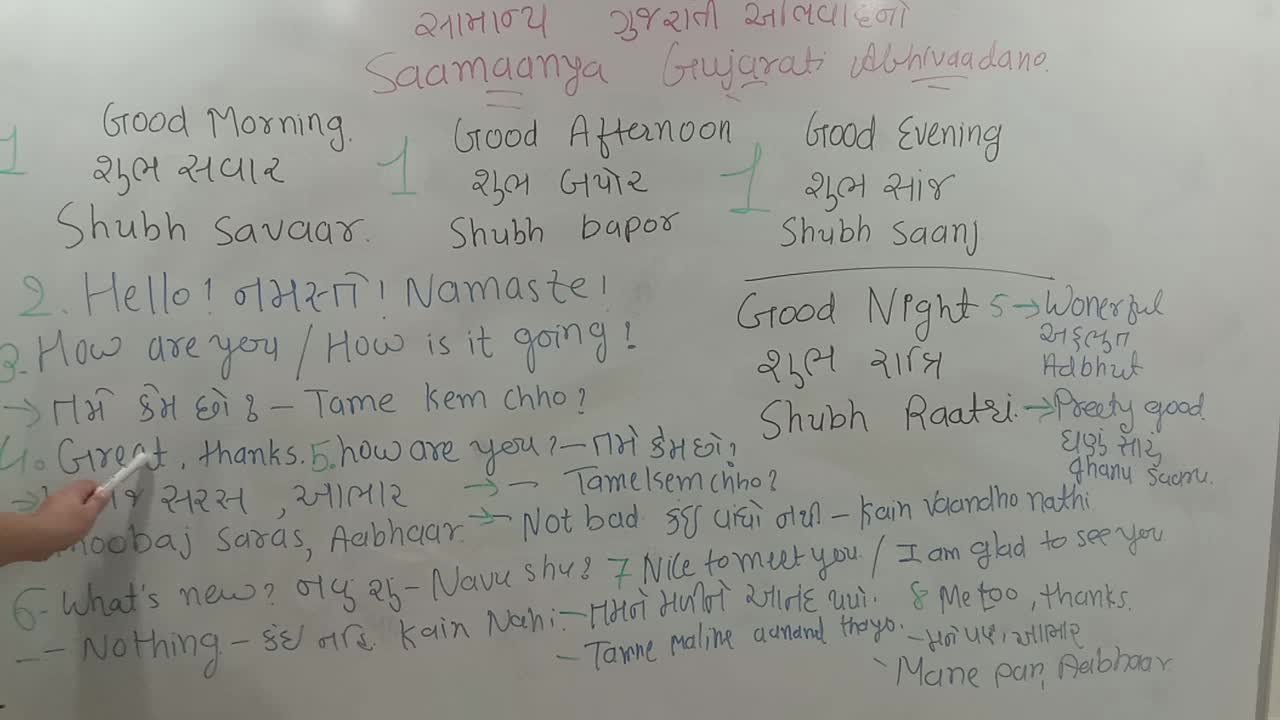 સામાન્ય ગુજરાતી અભિવાદનો
Saamaanya Gujarati Abhivaadano.
1 Good Morning.
શુભ સવાર
Shubh Savaar.
1 Good Afternoon
શુભ બપોર
Shubh bapor
1 Good Evening
શુભ સાંજ
Shubh Saanj
2. Hello! નમસ્તે! Namaste!
3. How are you / How is it going!
→ તમે કેમ છો? - Tame Kem chho?
Good Night
શુભ રાત્રિ
Shubh Raatri.
5 → Wonerful
અદભુત
Adbhut
→ Preety good
ઘણું સારું
ghanu Saaru.
4. Great, thanks. 5. how are you? - તમે કેમ છો?
→ - Tame kem chho?
→ જ સરસ, આભાર
saras, Aabhaar.
→ - Not bad કંઇ વાંધો નથી - Kain Vaandho nathi
6- What's new? નવુ શુ - Navu shu?
-- Nothing - કંઇ નહિ. Kain Nahi.
7 Nice to meet you. / I am glad to see you
- તમને મળીને આનંદ થયો.
- Tamne maline aanand thayo.
8 Me too, thanks.
- મને પણ, આભાર
- Mane pan, Aabhaar